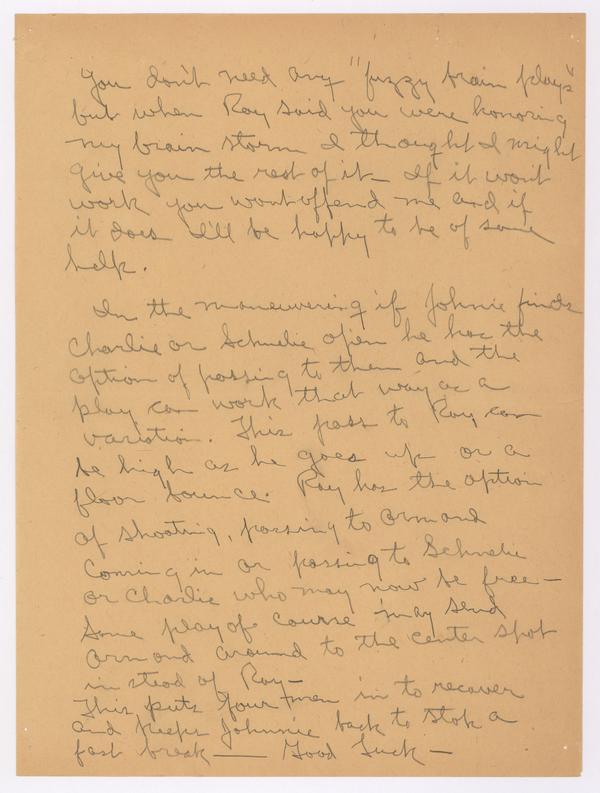 You don't need any "fuzzy brain plays"
but when Ray said you were honoring
my brain storm I thought I might
give you the rest of it - If it wont
work you wont offend me and if
it does I'll be happy to be of some
help.
In the maneuvering if Johnie finds
Charlie or Schmelie open he has the
option of passing to them and the
play can work that way as a
variation. This pass to Ray can
be high as he goes up or a
floor bounce. Ray has the option
of shooting, passing to Armond
coming in or passing to Schmelie
or Charlie who may now be free -
Same play of course may send
Armond around to the center spot
in stead of Ray -
This puts four men in to recover
and keeps Johnnie back to stop a
fast break — Good Luck -